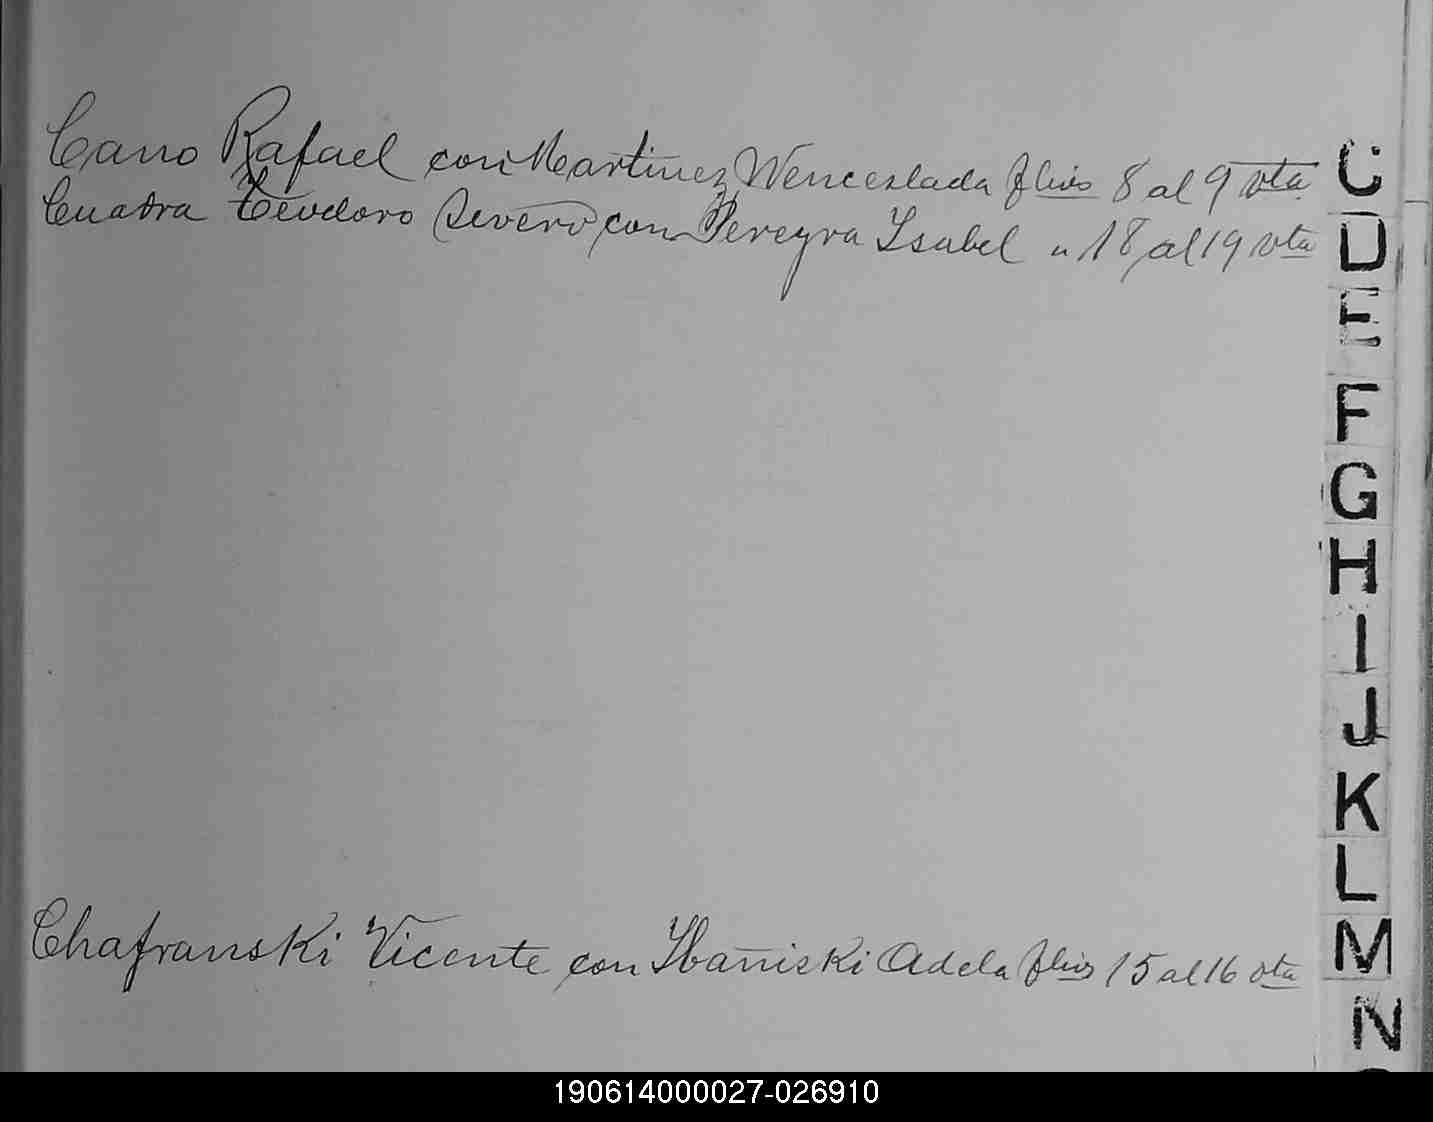 Cano Rafael con Martinez Wenceslada flios 8 al 9 vta
Cuadra Teodoro Severo con Pereyra Isabel " 18 al 19 vta
Chafranski Vicente con Ibaniski Adela flios 15 al 16 vta
C
D
E
F
G
H
I
J
K
L
M
N
190614000027-026910